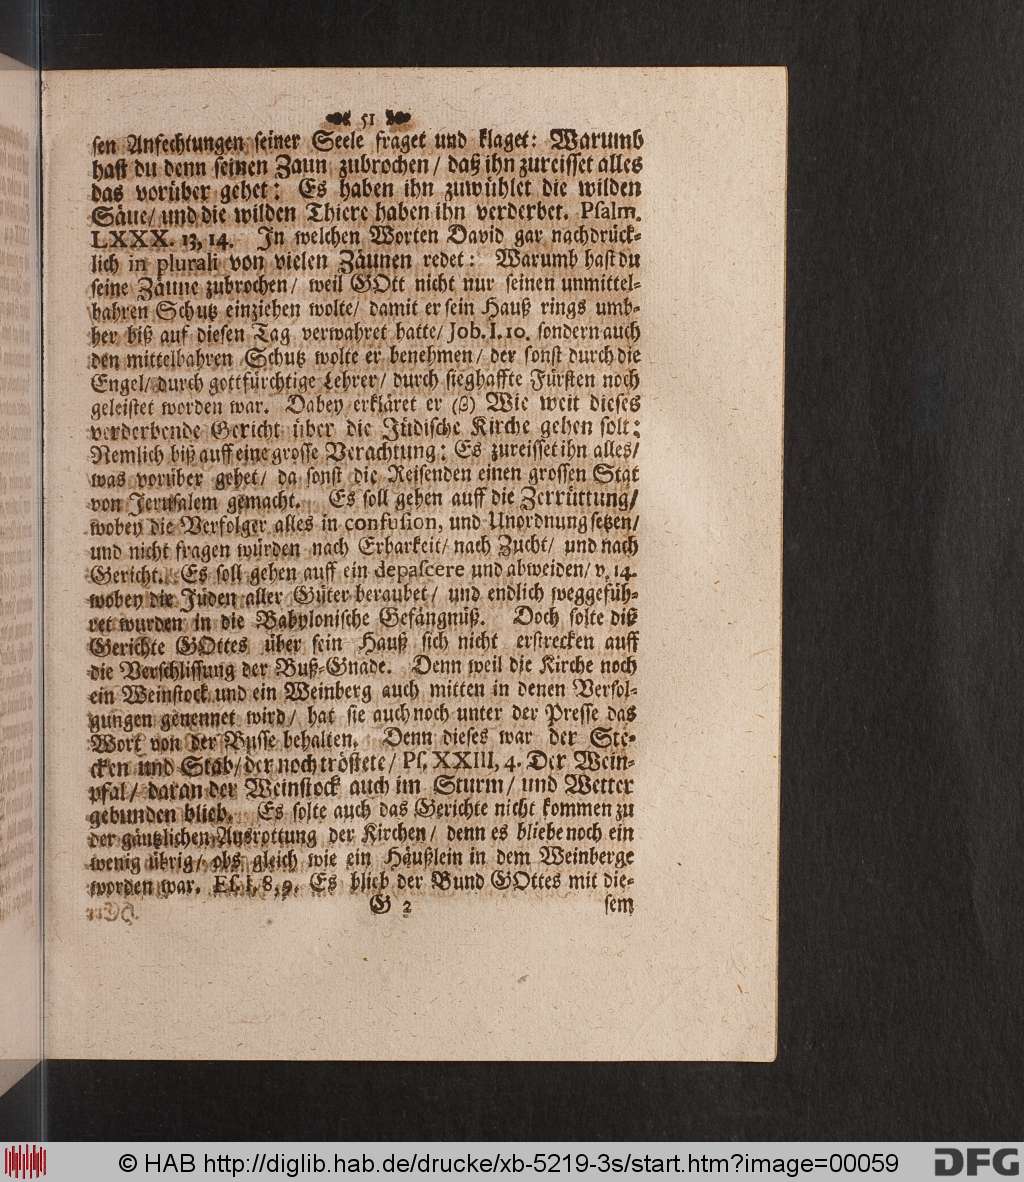 51
sen Anfechtungen seiner Seele fraget und klaget: Warumb
hast du denn seinen Zaun zubrochen/ daß ihn zureisset alles
das vorüber gehet: Es haben ihn zuwühlet die wilden
Säue/ und die wilden Thiere haben ihn verderbet. Psalm.
LXXX. 13, 14. In welchen Worten David gar nachdrück-
lich in plurali von vielen Zäunen redet: Warumb hast du
seine Zäune zubrochen/ weil GOtt nicht nur seinen unmittel-
bahren Schutz einziehen wolte/ damit er sein Hauß rings umb-
her biß auf diesen Tag verwahret hatte/ Job. I. 10. sondern auch
den mittelbahren Schutz wolte er benehmen/ der sonst durch die
Engel/ durch gottfürchtige Lehrer/ durch sieghaffte Fürsten noch
geleistet worden war. Dabey erkläret er (β) Wie weit dieses
verderbende Gericht über die Jüdische Kirche gehen solt:
Nemlich biß auff eine grosse Verachtung: Es zureisset ihn alles/
was vorüber gehet/ da sonst die Reisenden einen grossen Stat
von Jerusalem gemacht. Es soll gehen auff die Zerrüttung/
wobey die Verfolger alles in confusion, und Unordnung setzen/
und nicht fragen würden nach Erbarkeit/ nach Zucht/ und nach
Gericht. Es soll gehen auff ein depascere und abweiden/ v. 14.
wobey die Jüden aller Güter beraubet/ und endlich weggefüh-
ret wurden in die Babylonische Gefängnüß. Doch solte diß
Gerichte GOttes über sein Hauß sich nicht erstrecken auff
die Verschlissung der Buß-Gnade. Denn weil die Kirche noch
ein Weinstock und ein Weinberg auch mitten in denen Verfol-
gungen genennet wird/ hat sie auch noch unter der Presse das
Wort von der Busse behalten. Denn dieses war der Ste-
cken und Stab/ der noch tröstete/ Ps. XXIII, 4. Der Wein-
pfal/ daran der Weinstock auch im Sturm/ und Wetter
gebunden blieb. Es solte auch das Gerichte nicht kommen zu
der gäntzlichen Ausrottung der Kirchen/ denn es bliebe noch ein
wenig übrig/ obs gleich wie ein Häußlein in dem Weinberge
worden war. Es. I, 8, 9. Es blieb der Bund GOttes mit die-
G 2 sem
© HAB http://diglib.hab.de/drucke/xb-5219-3s/start.htm?image=00059
DFG